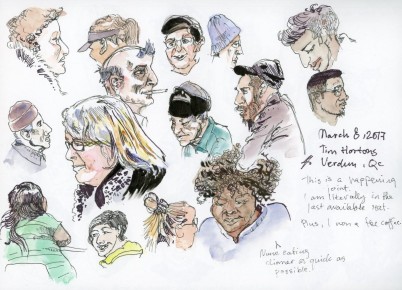 March 8, 2017
Tim Hortons
Verdun, Qc
This is a happening
joint.
I am literally in the
last available seat.
Plus, I won a free coffee
Nurse eating
dinner as quick as
possible!